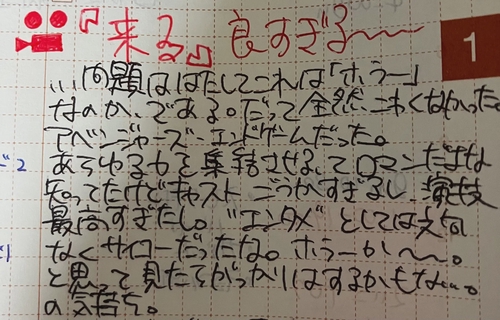 『来る』良すぎる〜〜
1
…問題ははたしてこれは「ホラー」
なのか、である。だって全然こわくなかった。
アベンジャーズ・エンドゲームだった。
あらゆる力を集結させる、てロマンだよな
知ってたけどキャストごうかすぎるし、演技
最高すぎたし。"エンタメ"としては文句
なくサイコーだったな。ホラーか〜。
と思って見たらがっかりはするかもな…。
の気持ち。